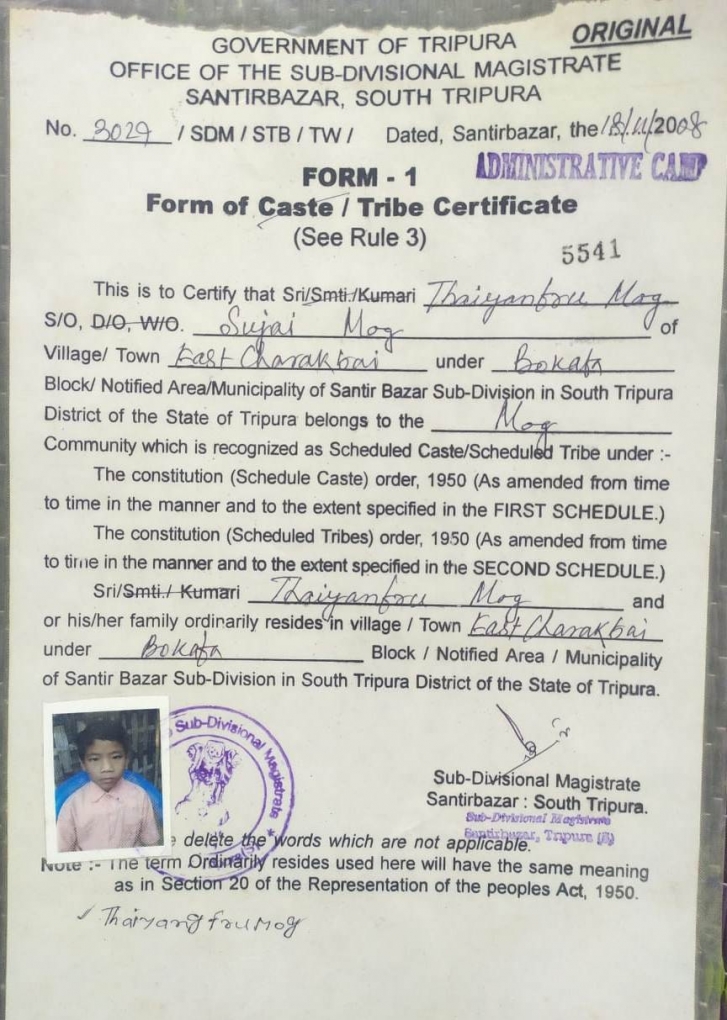 ORIGINAL
GOVERNMENT OF TRIPURA
OFFICE OF THE SUB-DIVISIONAL MAGISTRATE
SANTIRBAZAR, SOUTH TRIPURA
No. 3029 / SDM / STB / TW / Dated, Santirbazar, the 18/11/2008
ADMINISTRATIVE CAMP
FORM - 1
Form of Caste / Tribe Certificate
(See Rule 3)
5541
This is to Certify that Sri/Smti./Kumari Thaiyanfru Mog
S/O, D/O, W/O. Sujai Mog of
Village/ Town East Charakbai under Bokafa
Block/ Notified Area/Municipality of Santir Bazar Sub-Division in South Tripura
District of the State of Tripura belongs to the Mog
Community which is recognized as Scheduled Caste/Scheduled Tribe under :-
The constitution (Schedule Caste) order, 1950 (As amended from time
to time in the manner and to the extent specified in the FIRST SCHEDULE.)
The constitution (Scheduled Tribes) order, 1950 (As amended from time
to time in the manner and to the extent specified in the SECOND SCHEDULE.)
Sri/Smti./ Kumari Thaiyanfru Mog and
or his/her family ordinarily resides in village / Town East Charakbai
under Bokafa Block / Notified Area / Municipality
of Santir Bazar Sub-Division in South Tripura District of the State of Tripura.
Sub-Divisional Magistrate
Sub-Divisional Magistrate
Santirbazar : South Tripura.
Sub-Divisional Magistrate
Santirbazar, Tripura (S)
delete the words which are not applicable.
Note :- The term Ordinarily resides used here will have the same meaning
as in Section 20 of the Representation of the peoples Act, 1950.
Thaiyangfru Mog